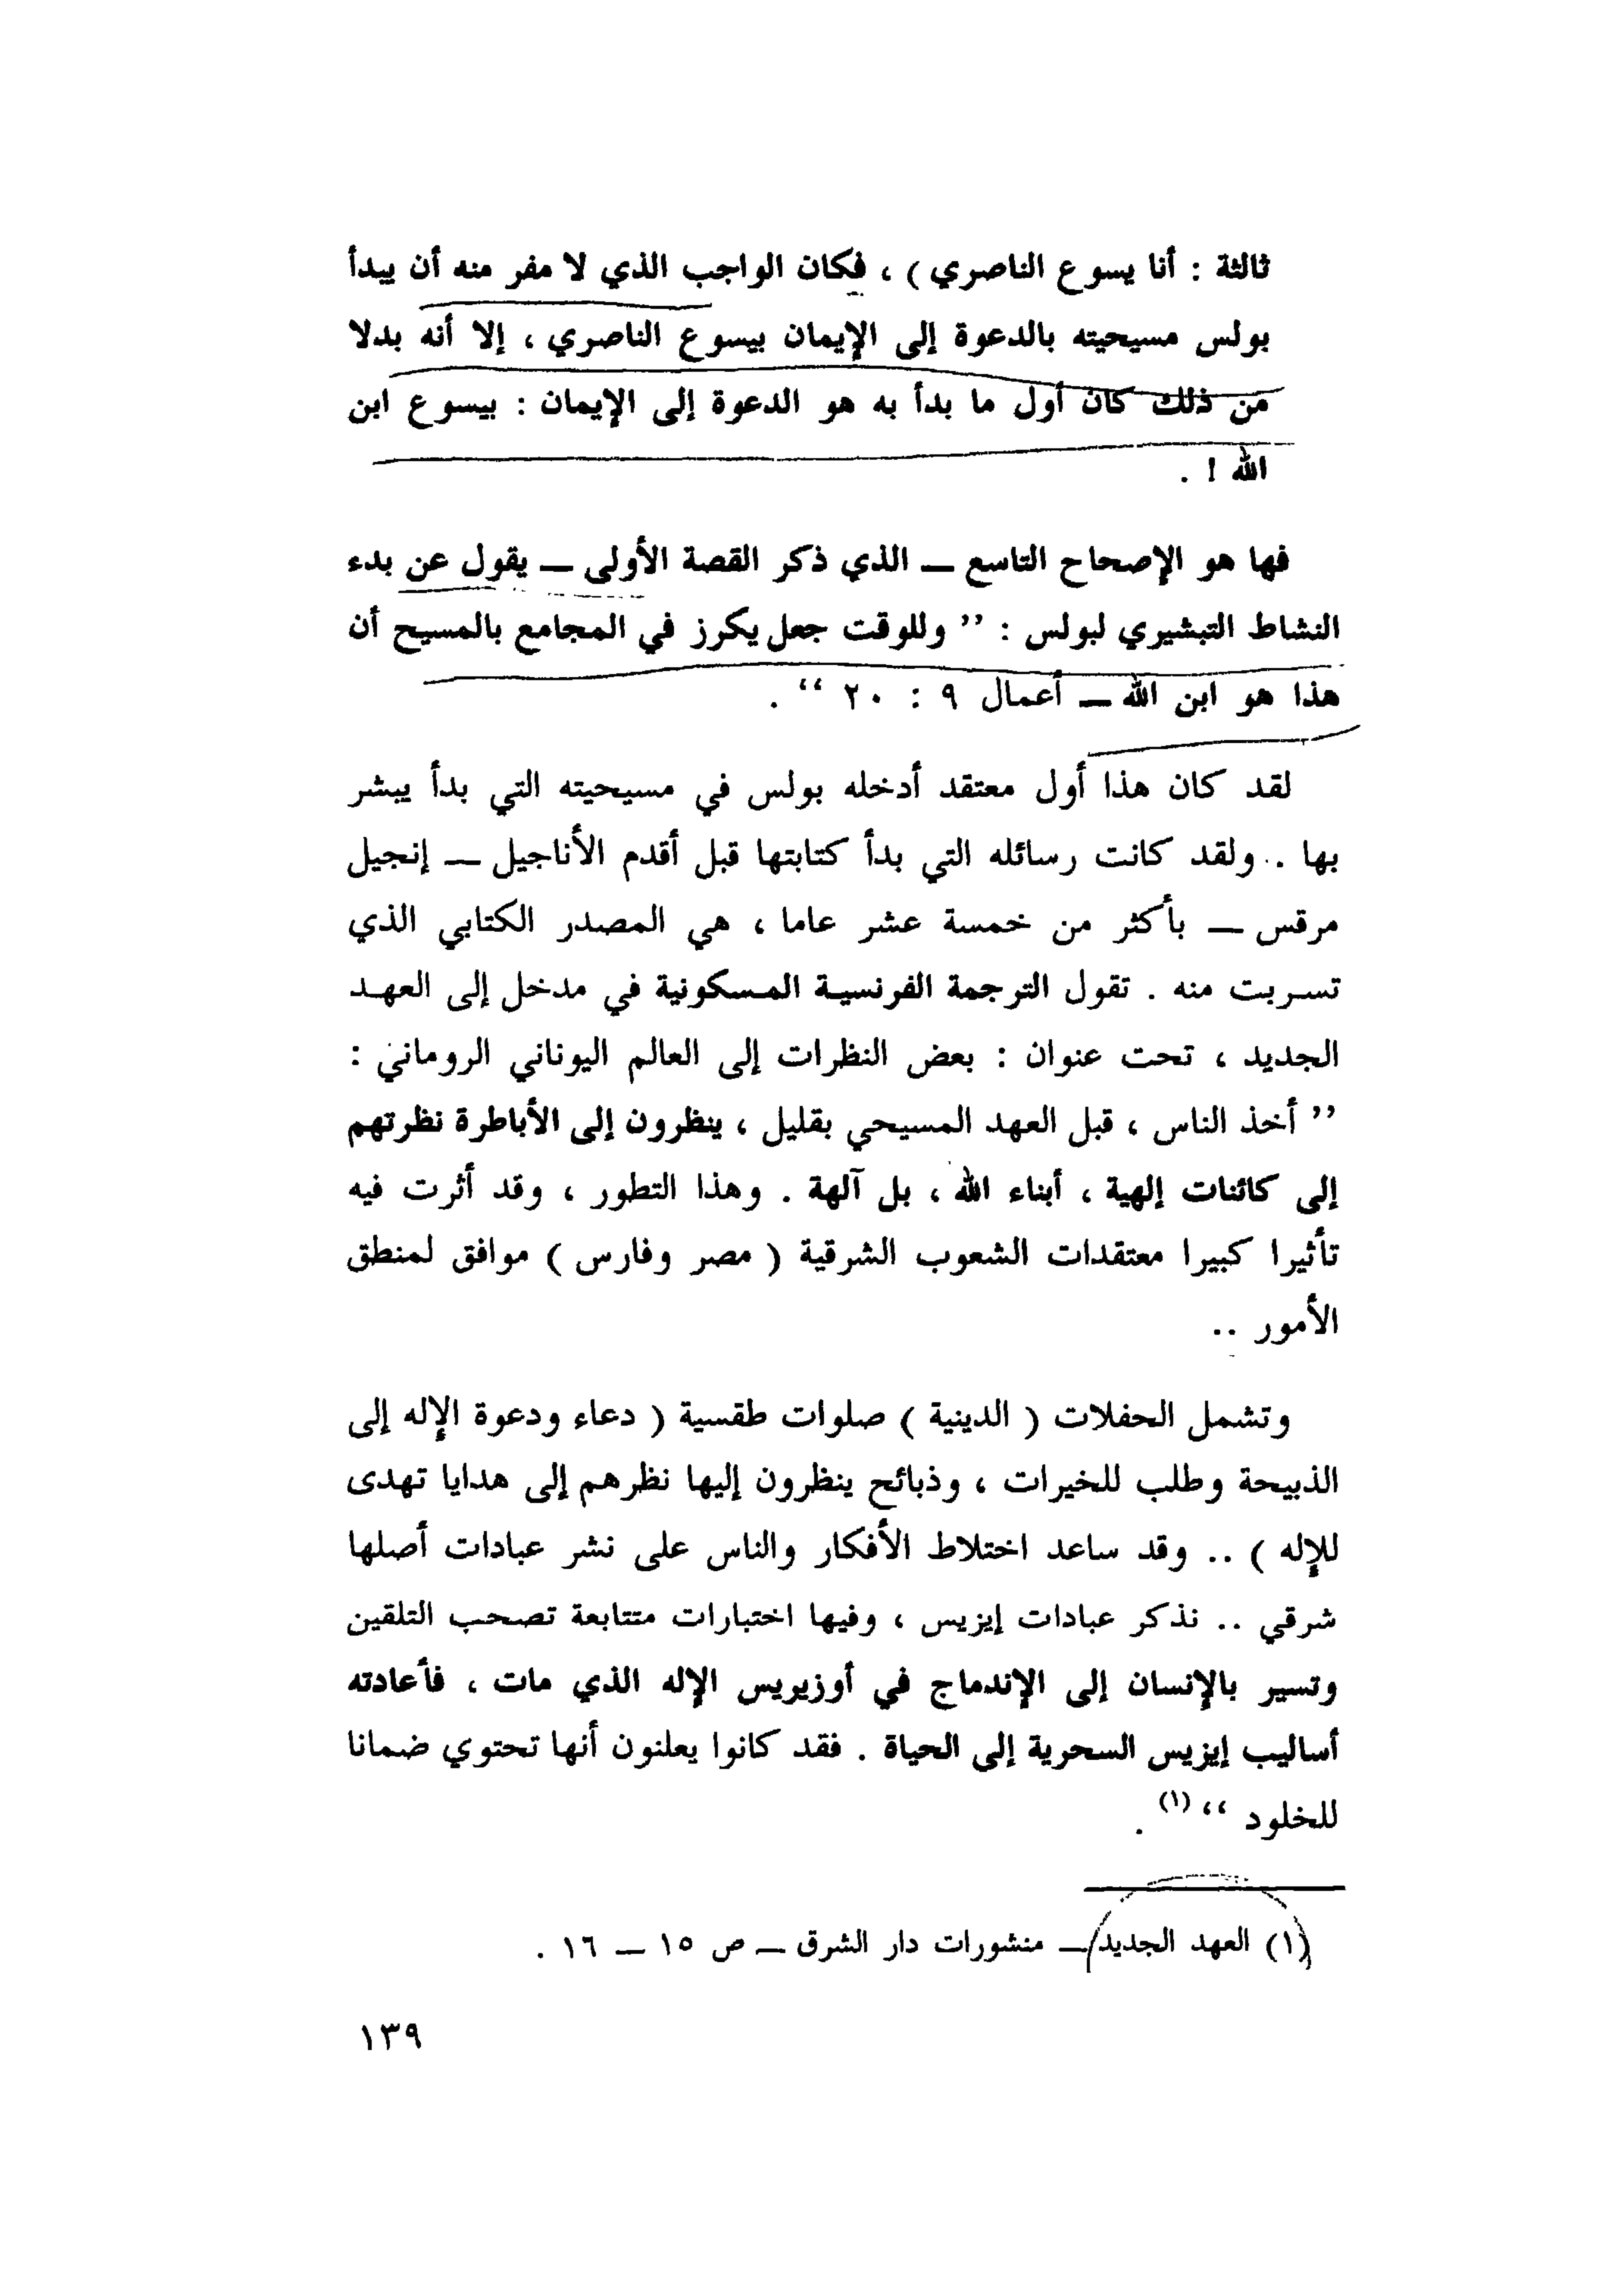 ثالثة : أنا يسوع الناصري ) ، فكان الواجب الذي لا مفر منه أن يبدأ
بولس مسيحيته بالدعوة إلى الإيمان بيسوع الناصري ، إلا أنه بدلا
من ذلك كان أول ما بدأ به هو الدعوة إلى الإيمان : بيسوع ابن
الله ! .
فها هو الإصحاح التاسع — الذي ذكر القصة الأولى — يقول عن بدء
النشاط التبشيري لبولس : ’’ وللوقت جعل يكرز في المجامع بالمسيح أن
هذا هو ابن الله — أعمال ٩ : ٢٠ ‘‘ .
لقد كان هذا أول معتقد أدخله بولس في مسيحيته التي بدأ يبشر
بها .. ولقد كانت رسائله التي بدأ كتابتها قبل أقدم الأناجيل — إنجيل
مرقس — بأكثر من خمسة عشر عاما ، هي المصدر الكتابي الذي
تسربت منه . تقول الترجمة الفرنسية المسكونية في مدخل إلى العهد
الجديد ، تحت عنوان : بعض النظرات إلى العالم اليوناني الروماني :
’’ أخذ الناس ، قبل العهد المسيحي بقليل ، ينظرون إلى الأباطرة نظرتهم
إلى كائنات إلهية ، أبناء الله ، بل آلهة . وهذا التطور ، وقد أثرت فيه
تأثيرا كبيرا معتقدات الشعوب الشرقية ( مصر وفارس ) موافق لمنطق
الأمور ..
وتشمل الحفلات ( الدينية ) صلوات طقسية ( دعاء ودعوة الإله إلى
الذبيحة وطلب للخيرات ، وذبائح ينظرون إليها نظرهم إلى هدايا تهدى
للإله ) .. وقد ساعد اختلاط الأفكار والناس على نشر عبادات أصلها
شرقي .. نذكر عبادات إيزيس ، وفيها اختبارات متتابعة تصحب التلقين
وتسير بالإنسان إلى الإندماج في أوزيريس الإله الذي مات ، فأعادته
أساليب إيزيس السحرية إلى الحياة . فقد كانوا يعلنون أنها تحتوي ضمانا
للخلود ‘‘ (١) .
(١) العهد الجديد — منشورات دار الشرق — ص ١٥ — ١٦ .
١٣٩